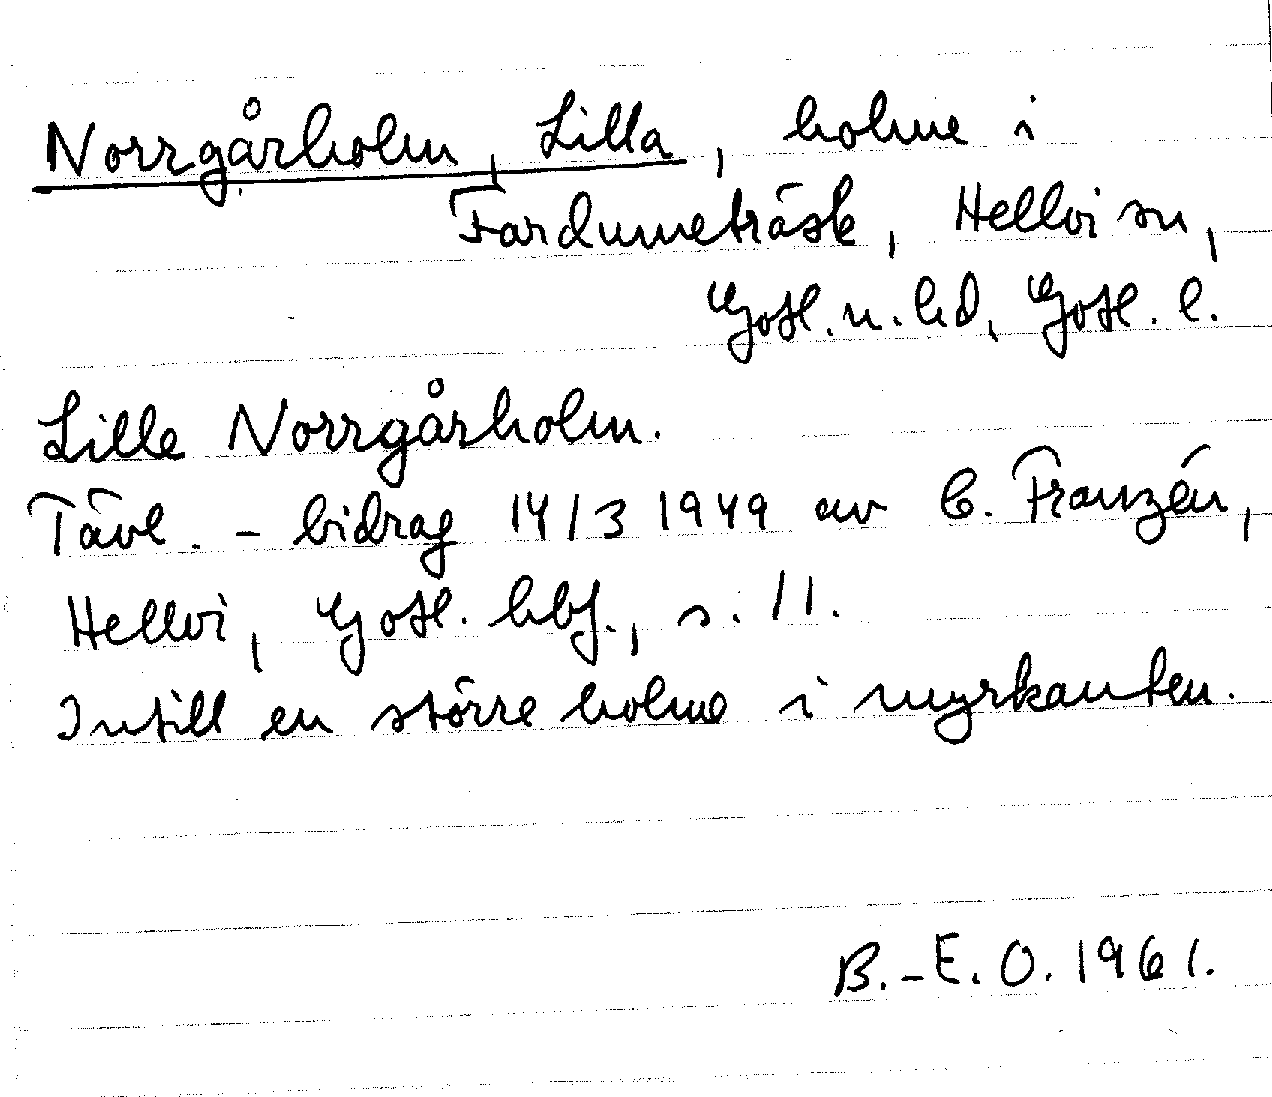 Norrgårholm, Lilla, holme i
Fardumeträsk, Hellvi sn,
Gotl. n. hd, Gotl. l.
Lille Norrgårholm.
Tävl. - bidrag 14/3 1949 av C. Franzén,
Hellvi, Gotl. hbf., s. 11.
Intill en större holme i myrkanten.
B.-E. O. 1961.